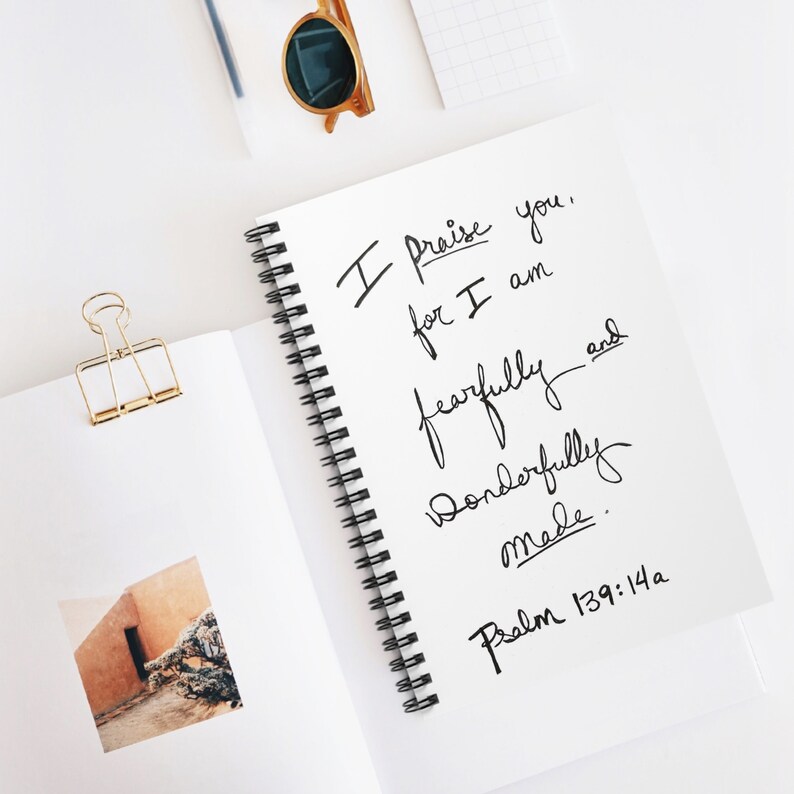 I praise you,
for I am
fearfully and
Wonderfully
made.
Psalm 139:14a